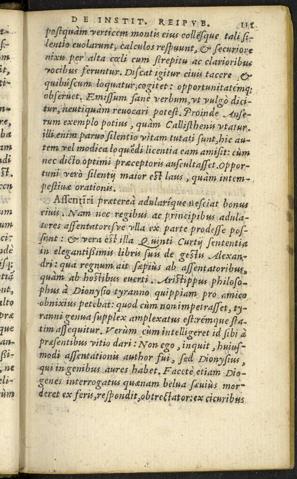 DE INSTIT. REIPVB.
postquàm verticem montis eius collésque tali si-
lentio euolarunt, calculos respuunt, & securiore
nixu per alta cæli cum strepitu ac clarioribus
vocibus feruntur. Discat igitur eius tacere &
quibuscum loquatur, cogitet: opportunitatémq;
obseruet. Emissum sanè verbum, vt vulgò dici-
tur, neutiquàm reuocari potest. Proinde Anse-
rum exemplo potius, quàm Callisthenis vtatur.
illi enim paruo silentio vitam tutati sunt, hic au-
tem vel modica loquēdi licentia eam amisit: cùm
nec dicto optimi præceptoris auscultasset. Oppor-
tuni verò silentij maior est laus, quàm intem-
pestiuæ orationis.
Assentiri præterea adularíque nesciat bonus
ciuis. Nam nec regibus ac principibus adula-
tores assentatorésve vlla ex parte prodesse pos-
sont: & vera est illa Quinti Curtij sententia
in elegantissimis libris suis de gestis Alexan-
dri: qua regnum ait sæpiùs ab assentatoribus,
quàm ab hostibus euerti. Aristippus philoso-
phus à Dionysio tyranno quippiam pro amico
obnixiùs petebat: quod cùm non impetrasset, ty-
ranni genua supplex amplexatus est: rémque sta-
tim assequitur. Verùm cùm intelligeret id sibi à
præsentibus vitio dari: Non ego, inquit, huius-
modi assentationis author fui, sed Dionysius,
qui in genibus aures habet. Facetè etiam Dio-
genes interrogatus quænam belua sæuiùs mor-
deret ex feris, respondit, obtrectator: ex cicuribus